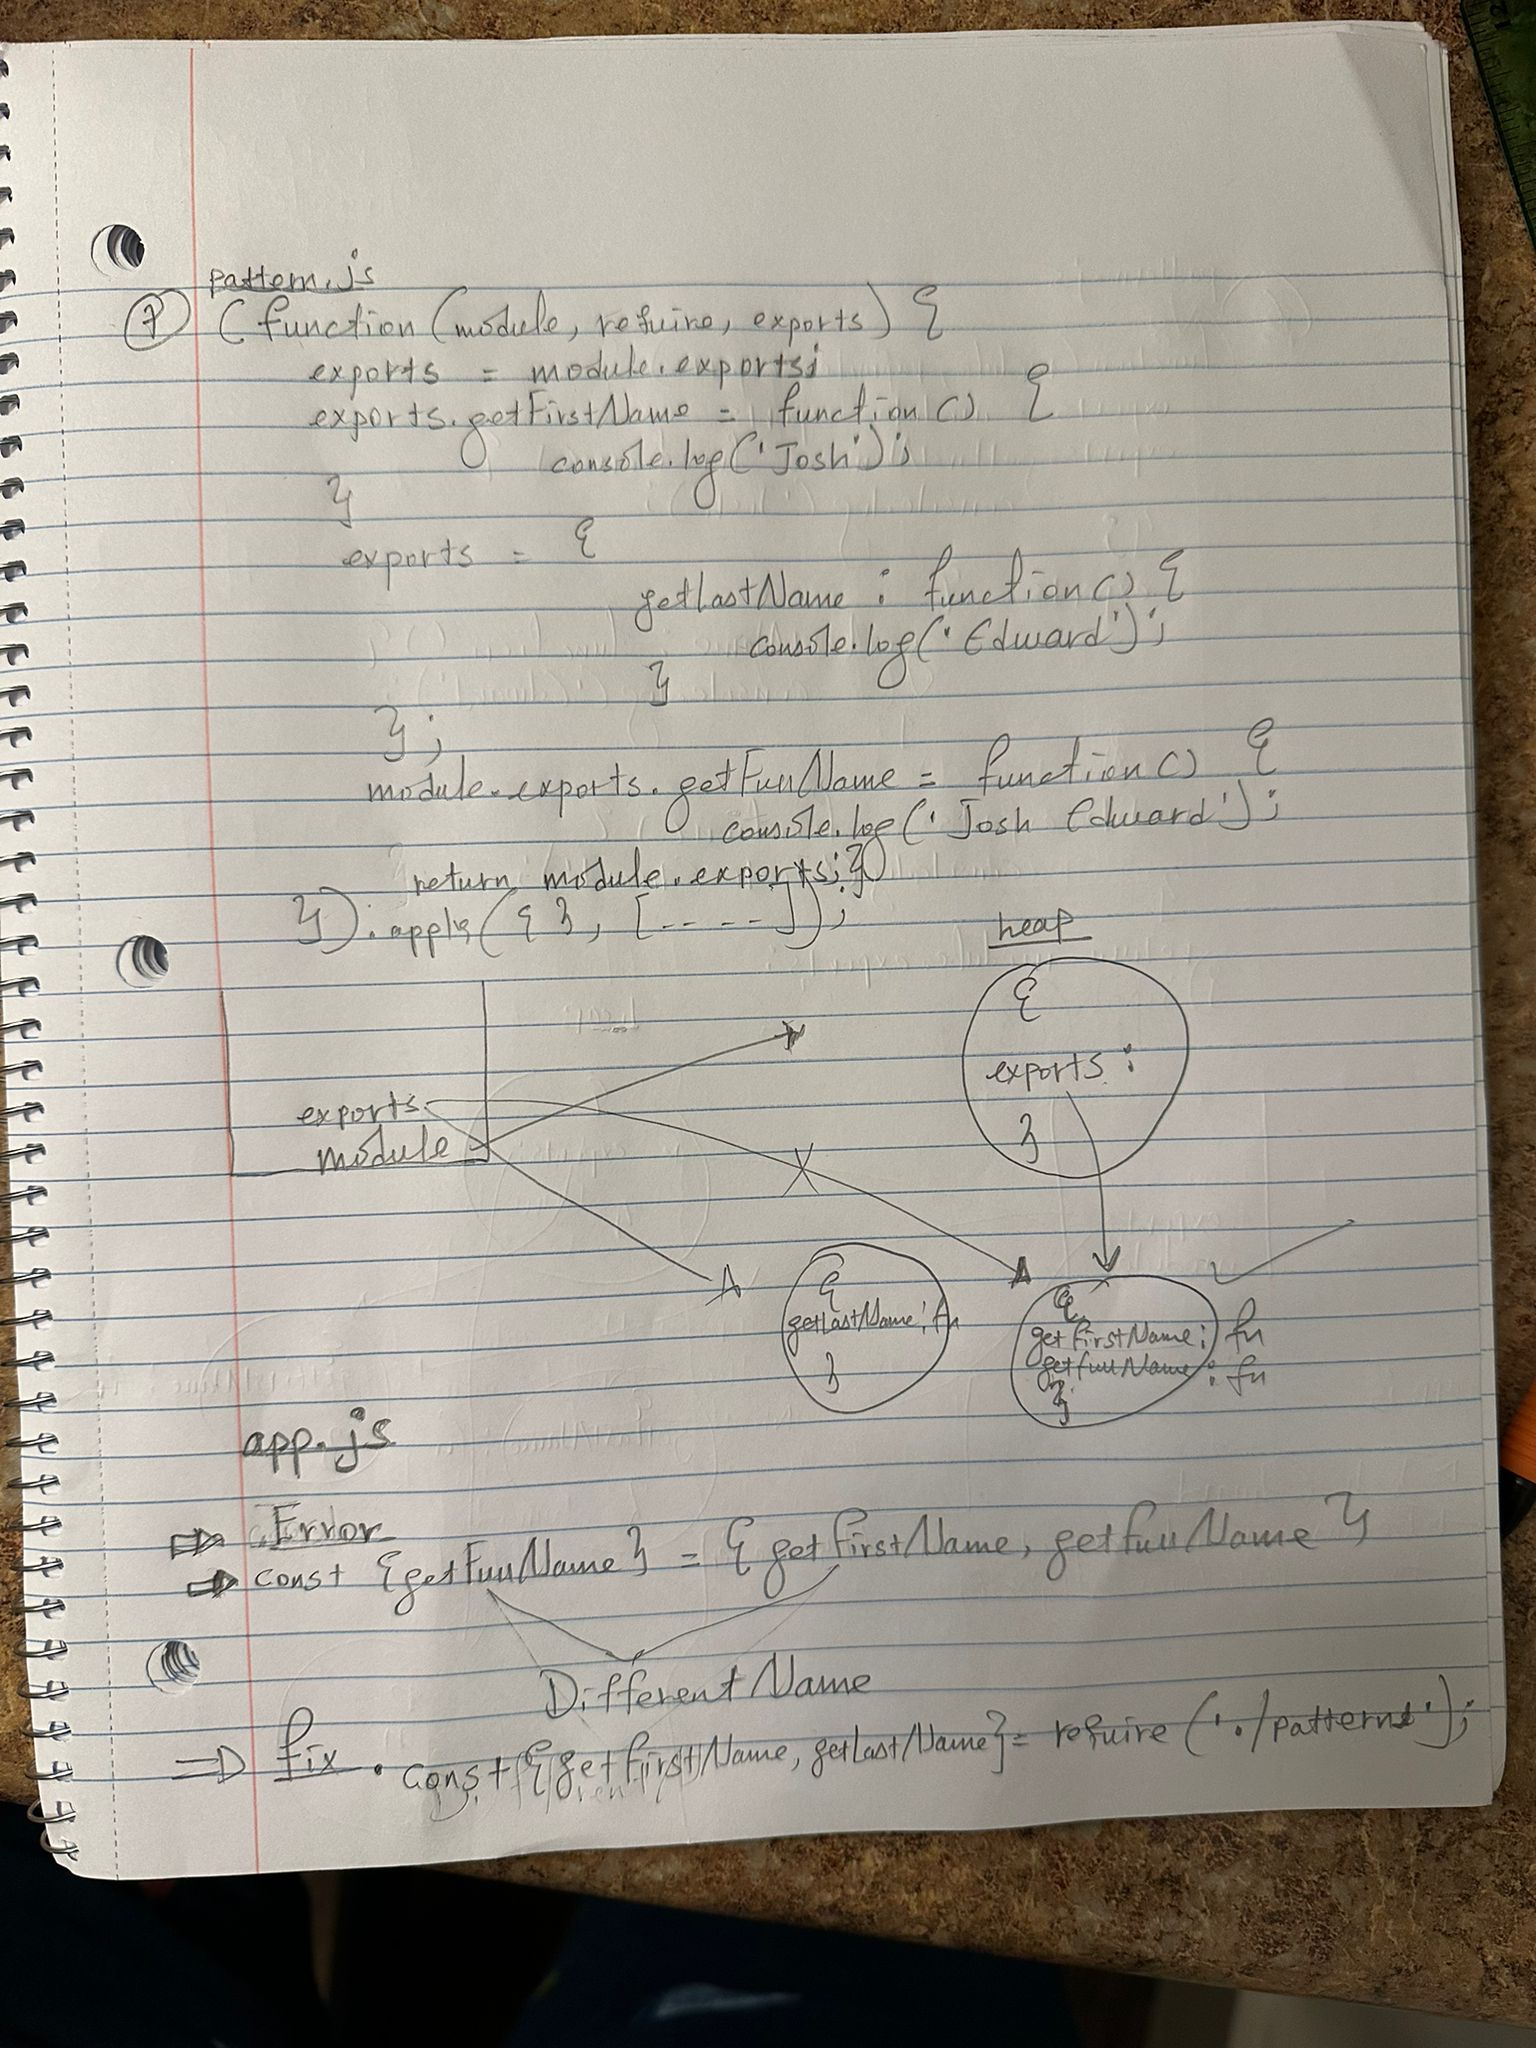 pattern.js
7 (function (module, require, exports) {
exports = module.exports;
exports.getFirstName = function () {
console.log('Josh');
}
exports = {
getLastName : function () {
console.log('Edward');
}
};
module.exports.getFullName = function () {
console.log('Josh Edward');
return module.exports; }
}).apply({ }, [----]);
heap
{
exports :
}
exports
module
{
getLastName : fn
}
{
getFirstName : fn
getFullName : fn
}
app.js
⇒ Error
⇒ const {getFullName} = { getFirstName, getFullName }
Different Name
⇒ fix. const {getFirstName, getLastName} = require ('./pattern');